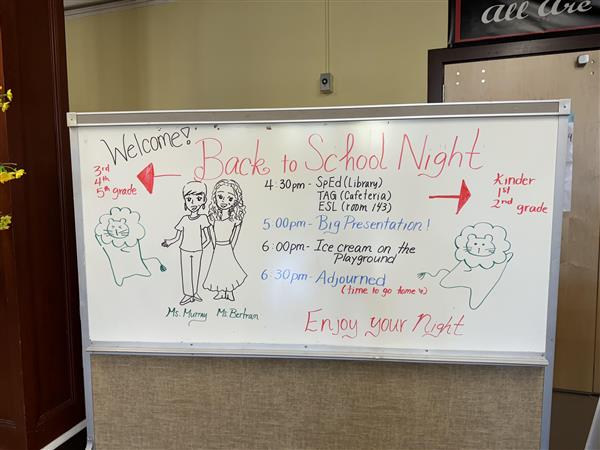 All Are
Welcome!
Back to School Night
3rd
4th
5th grade
Kinder
1st
2nd grade
4:30pm - SpEd (Library)
TAG (Cafeteria)
ESL (room 143)
5:00pm - Big Presentation!
6:00pm - Ice cream on the
Playground
6:30pm - Adjourned
(time to go home
Ms. Murray Ms. Bertram
Enjoy your Night